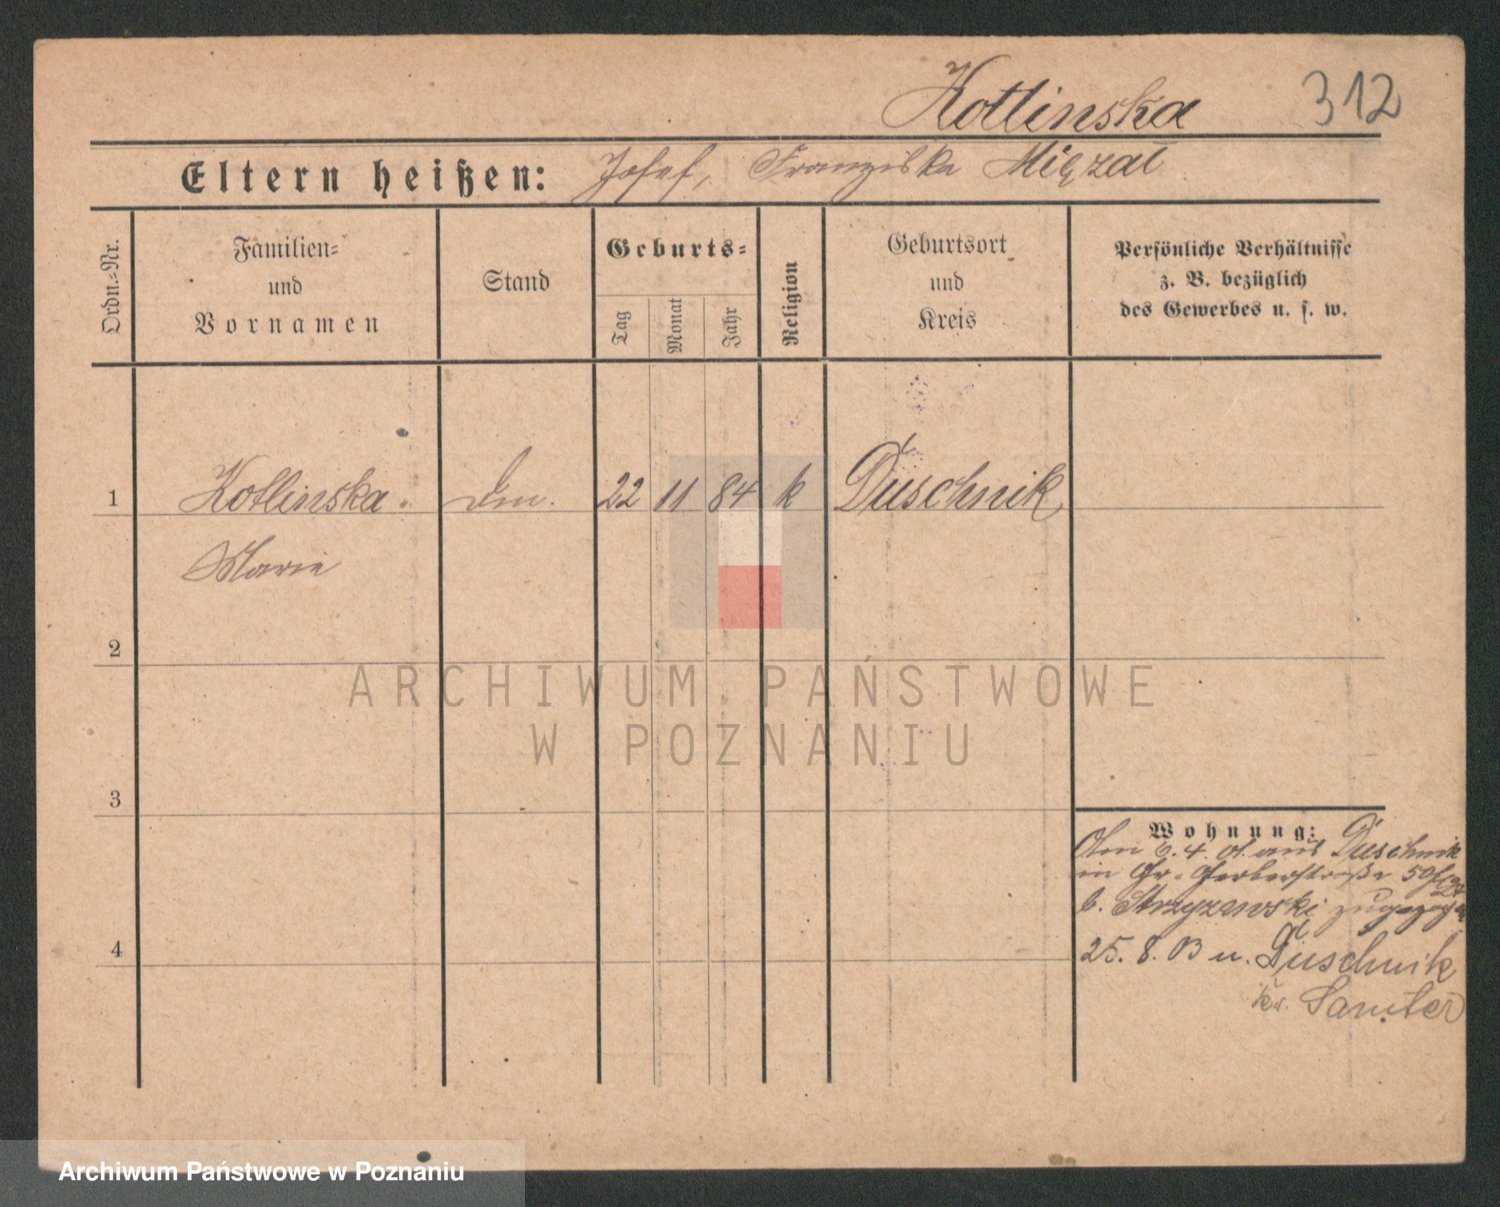 Kotlinska 312
Eltern heißen: Josef, Franziska Migzal
Ordn.=Nr.
Familien=
und
Vornamen
Stand
Geburts=
Tag
Monat
Jahr
Religion
Geburtsort
und
Kreis
Persönliche Verhältnisse
z. B. bezüglich
des Gewerbes u. s. w.
1 Kotlinska 22 11 84 k Duschnik
Marie
2
3
4
Wohnung:
Am 6. 4. 01. aus Duschnik
in Gr. Gerberstraße 50
b. Strzyzewski zugezogen
25. 8. 03 n. Duschnik
Kr. Samter
ARCHIWUM PAŃSTWOWE
W POZNANIU
Archiwum Państwowe w Poznaniu